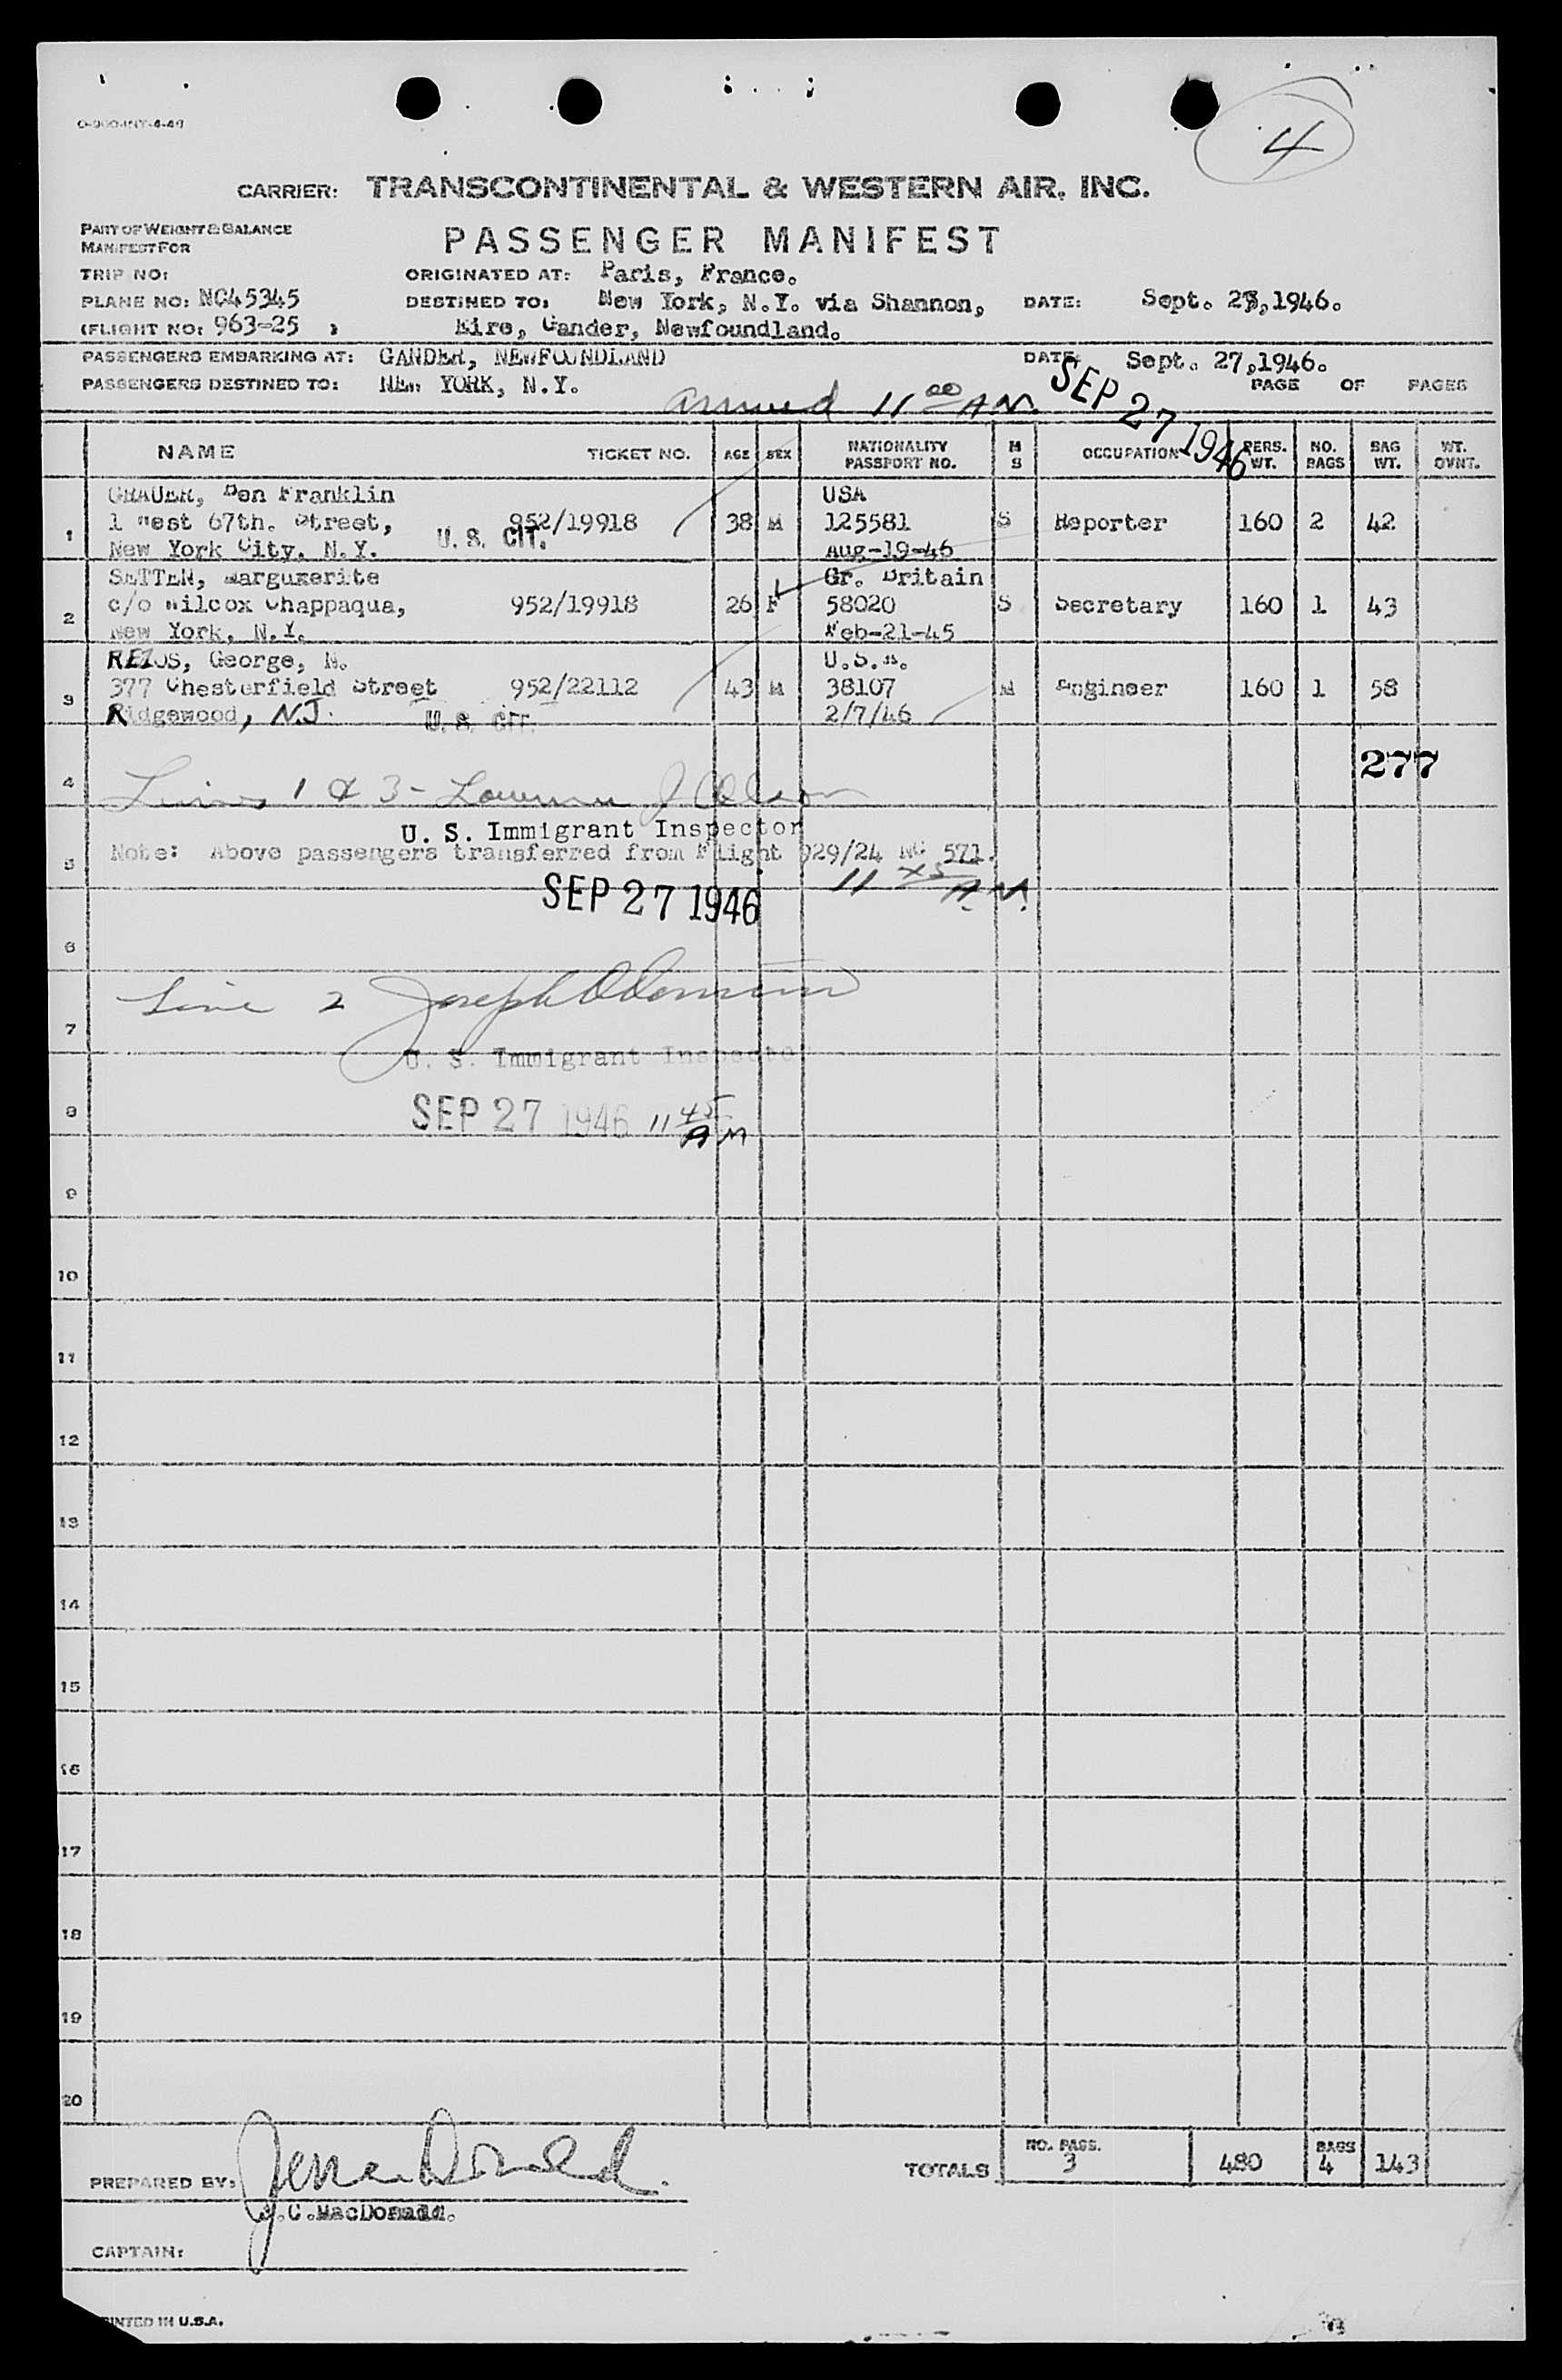 O-900-INT-4-46
4
CARRIER: TRANSCONTINENTAL & WESTERN AIR, INC.
PART OF WEIGHT & BALANCE
MANIFEST FOR
PASSENGER MANIFEST
TRIP NO: ORIGINATED AT: Paris, France.
PLANE NO: NC45345 DESTINED TO: New York, N.Y. via Shannon, DATE: Sept. 2,1946.
(FLIGHT NO: 963-25 ) Eire, Gander, Newfoundland.
PASSENGERS EMBARKING AT: GANDER, NEWFOUNDLAND DATE: Sept. 27,1946.
PASSENGERS DESTINED TO: NEW YORK, N.Y. PAGE OF PAGES
arrived 11 00 A.M. SEP 27 1946
NAME TICKET NO. AGE SEX NATIONALITY PASSPORT NO. M S OCCUPATION PERS. WT. NO. BAGS BAG WT. WT. OVNT.
GRAUER, Ben Franklin USA
1 1 West 67th. Street, 952/19918 38 M 125581 S Reporter 160 2 42
New York City. N.Y. U. S. CIT. Aug-19-46
SETTEN, Marguxerite Gr. Britain
2 c/o Wilcox Chappaqua, 952/19918 26 F 58020 S Secretary 160 1 43
New York, N.Y. Feb-21-45
REIOS, George, N. U.S.A.
3 377 Chesterfield Street 952/22112 43 M 38107 M Engineer 160 1 58
Ridgewood, N.J. U. S. CIT. 2/7/46
277
4 Lines 1 & 3 - J Olson
U. S. Immigrant Inspector
5 Note: Above passengers transferred from Flight 929/24 NC 571.
SEP 27 1946 11 45 A.M.
6
7 Line 2 Joseph
U. S. Immigrant Inspector
8 SEP 27 1946 11 45 AM
9
10
11
12
13
14
15
16
17
18
19
20
TOTALS NO. PASS. 3 480 BAGS 4 143
PREPARED BY:
J.C.MacDonald.
CAPTAIN:
PRINTED IN U.S.A.